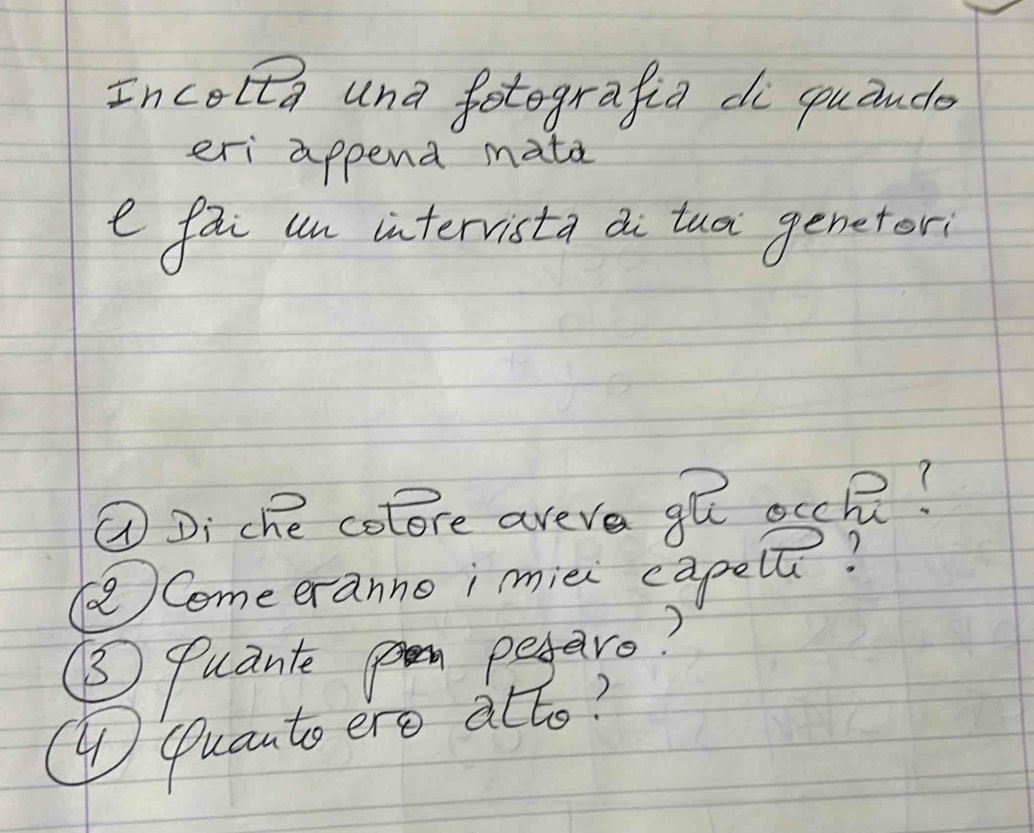 Incolla una fotografia di quando
eri appena mata
e fai un intervista di tuoi genetori
① Di che colore avevo gli occhi?
② Come eranno i miei capelli?
③ Quante pesavo?
④ Quanto ero alto?